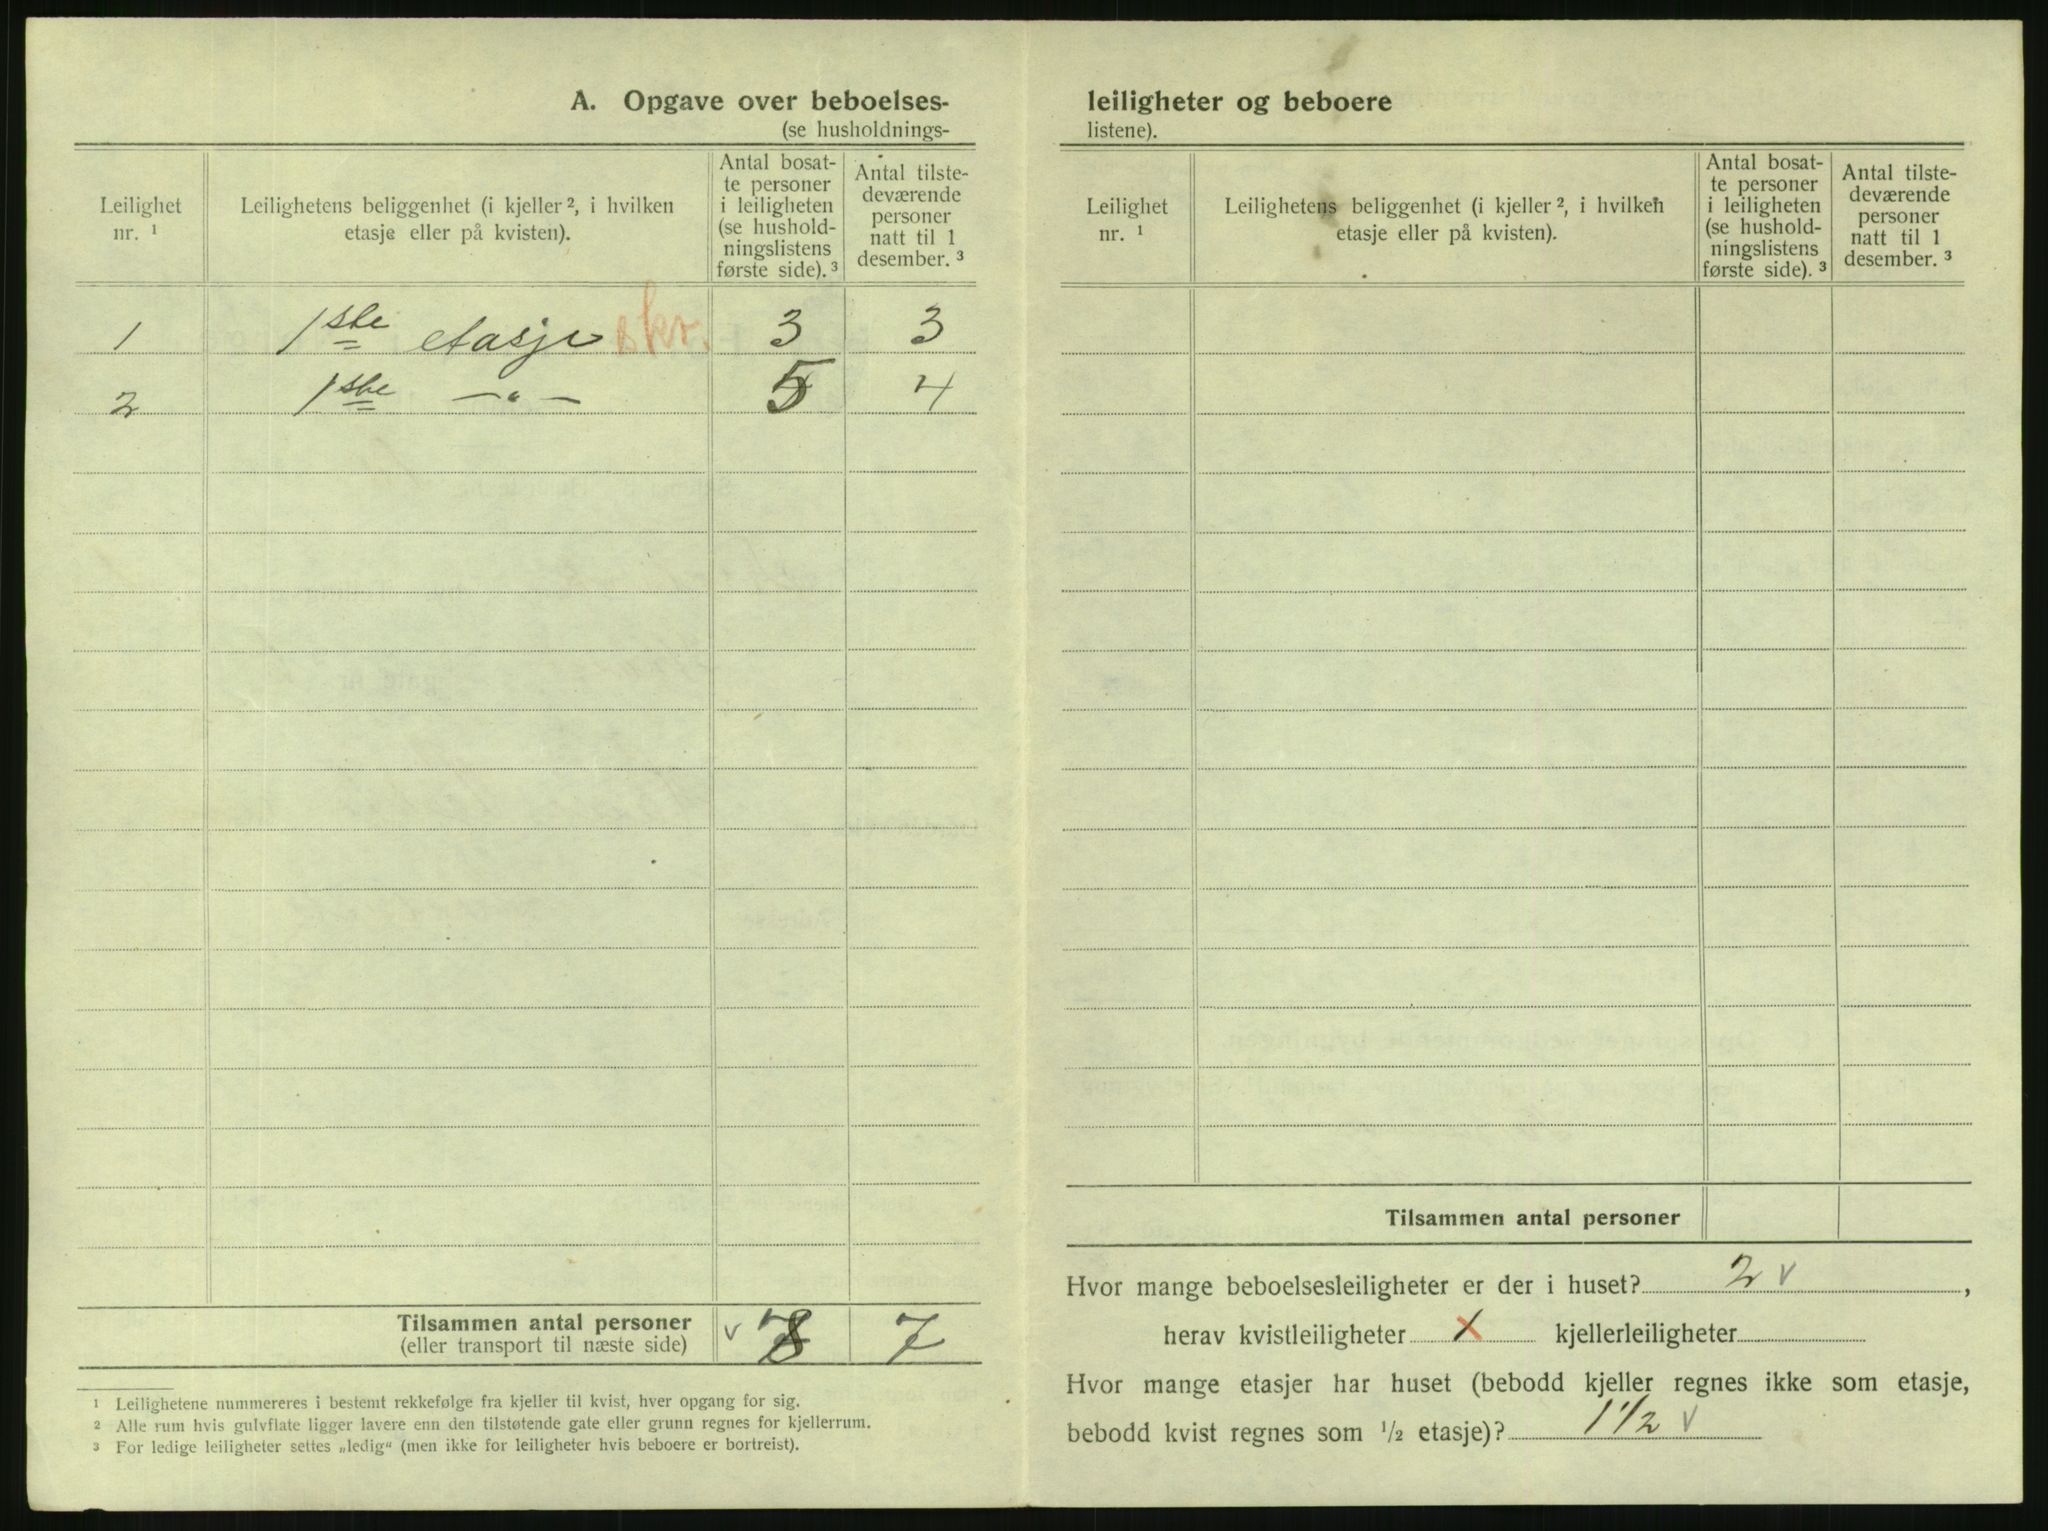 A. Opgave over beboelses-
(se husholdnings-
Leilighet
nr. ¹
Leilighetens beliggenhet (i kjeller ², i hvilken
etasje eller på kvisten).
Antal bosat-
te personer
i leiligheten
(se hushold-
ningslistens
første side). ³
Antal tilste-
deværende
personer
natt til 1
desember. ³
1 1ste etasje skr. 3 3
2 1ste —"— 5 4
Tilsammen antal personer
(eller transport til næste side) v 8 7
¹ Leilighetene nummereres i bestemt rekkefølge fra kjeller til kvist, hver opgang for sig.
² Alle rum hvis gulvflate ligger lavere enn den tilstøtende gate eller grunn regnes for kjellerrum.
³ For ledige leiligheter settes „ledig“ (men ikke for leiligheter hvis beboere er bortreist).
leiligheter og beboere
listene).
Leilighet
nr. ¹
Leilighetens beliggenhet (i kjeller ², i hvilken
etasje eller på kvisten).
Antal bosat-
te personer
i leiligheten
(se hushold-
ningslistens
første side). ³
Antal tilste-
deværende
personer
natt til 1
desember. ³
Tilsammen antal personer
Hvor mange beboelsesleiligheter er der i huset? 2 v ,
herav kvistleiligheter x kjellerleiligheter
Hvor mange etasjer har huset (bebodd kjeller regnes ikke som etasje,
bebodd kvist regnes som ½ etasje)? 1½ v